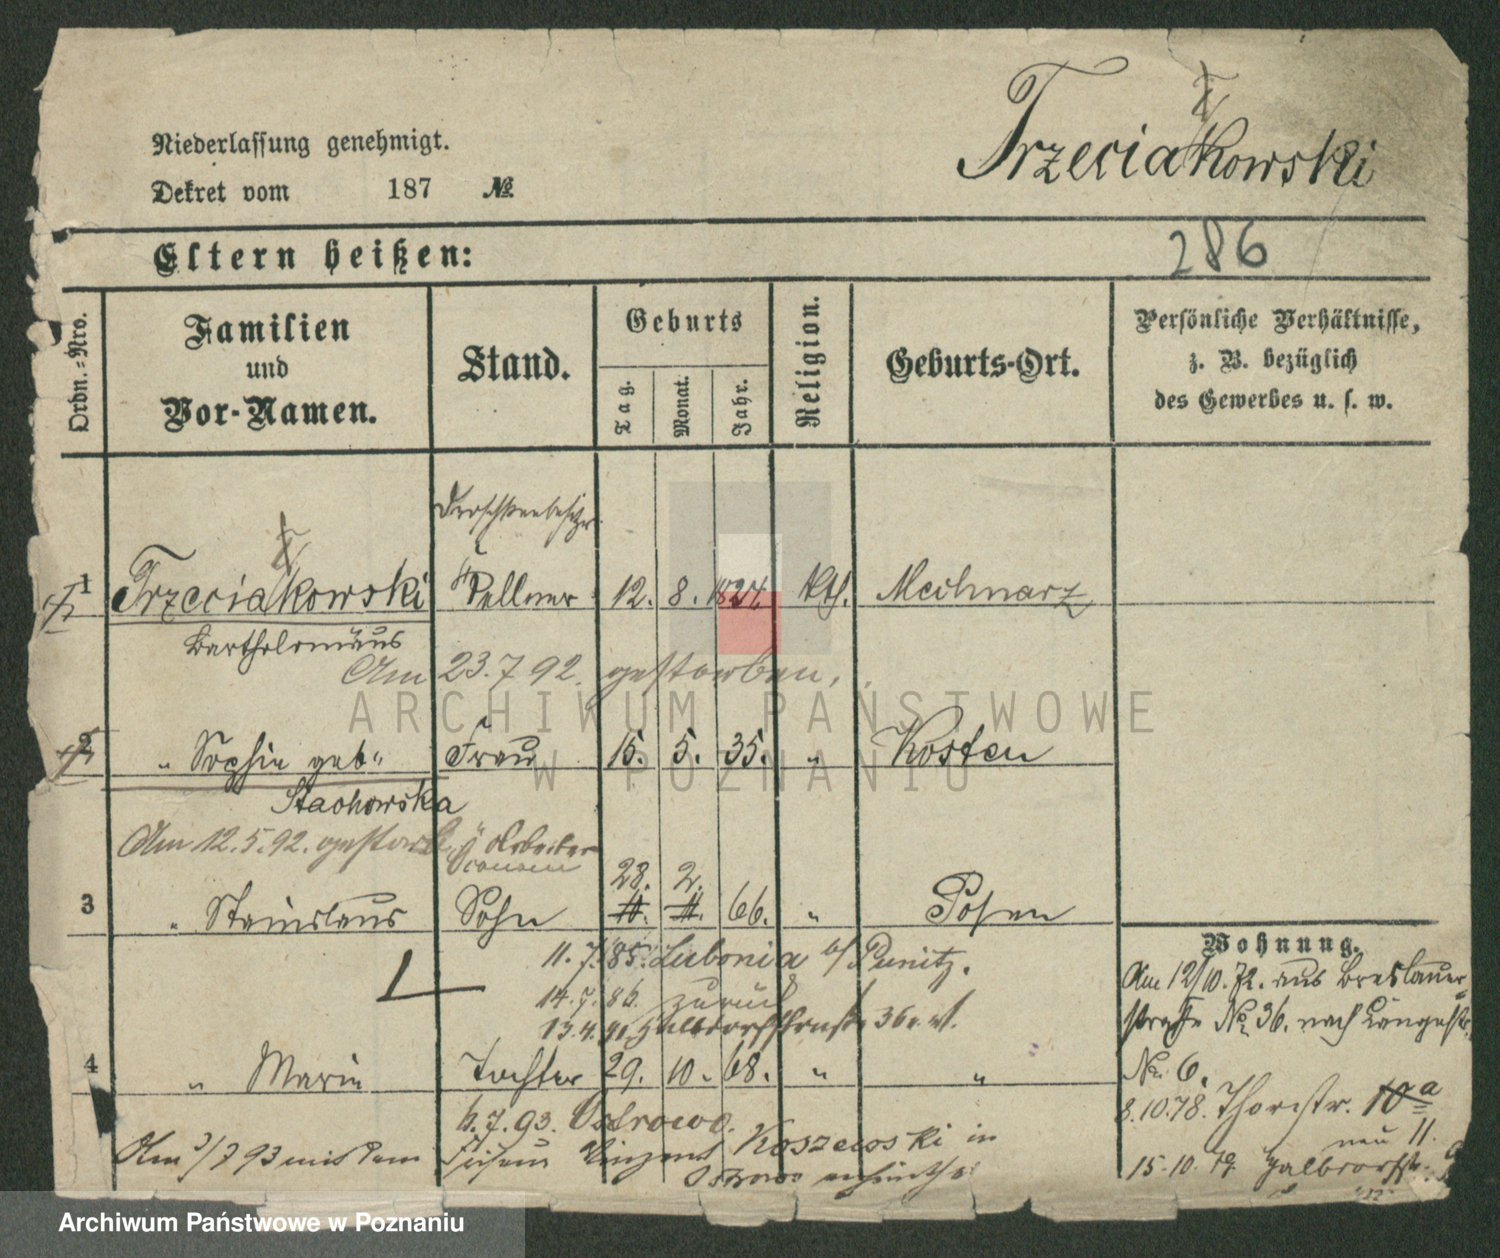 Trzeciakowski
Niederlassung genehmigt.
Dekret vom 187 №
286
Eltern heißen:
Ordn.-Nro.
Familien
und
Vor-Namen.
Stand.
Geburts
Tag.
Monat.
Jahr.
Religion.
Geburts-Ort.
Persönliche Verhältnisse,
z. B. bezüglich
des Gewerbes u. s. w.
Droschkenbesitzer
1 Trzeciakowski Kellner 12. 8. 1824. kth.
Bartholomäus
Am 23.7 92. gestorben.
2 " Sophie geb" Frau 15. 5. 35. " Kosten
Stachowska
Am 12.5.92. gestorb. Arbeiter
28. 2.
3 " Stanislaus Sohn 11. 11. 66. " Posen
11. 7. 85. Lubonia b/ Punitz.
14. 7. 86. zurück
13.4.91. Halbdorfstraße 36
4 " Marie Tochter 29. 10. 68. " "
6.7.93. Ostrowo.
Am 3/7 93 mit dem Vinzent Koszewski in
Ostrowo
Wohnung.
Am 12/10. 72. aus Breslauer-
straße No. 36. nach Langestr.
No. 6.
8.10.78. Thorstr. 10a
neu 11.
15.10.79. Halbdorfstr.
ARCHIWUM PAŃSTWOWE
W POZNANIU
Archiwum Państwowe w Poznaniu